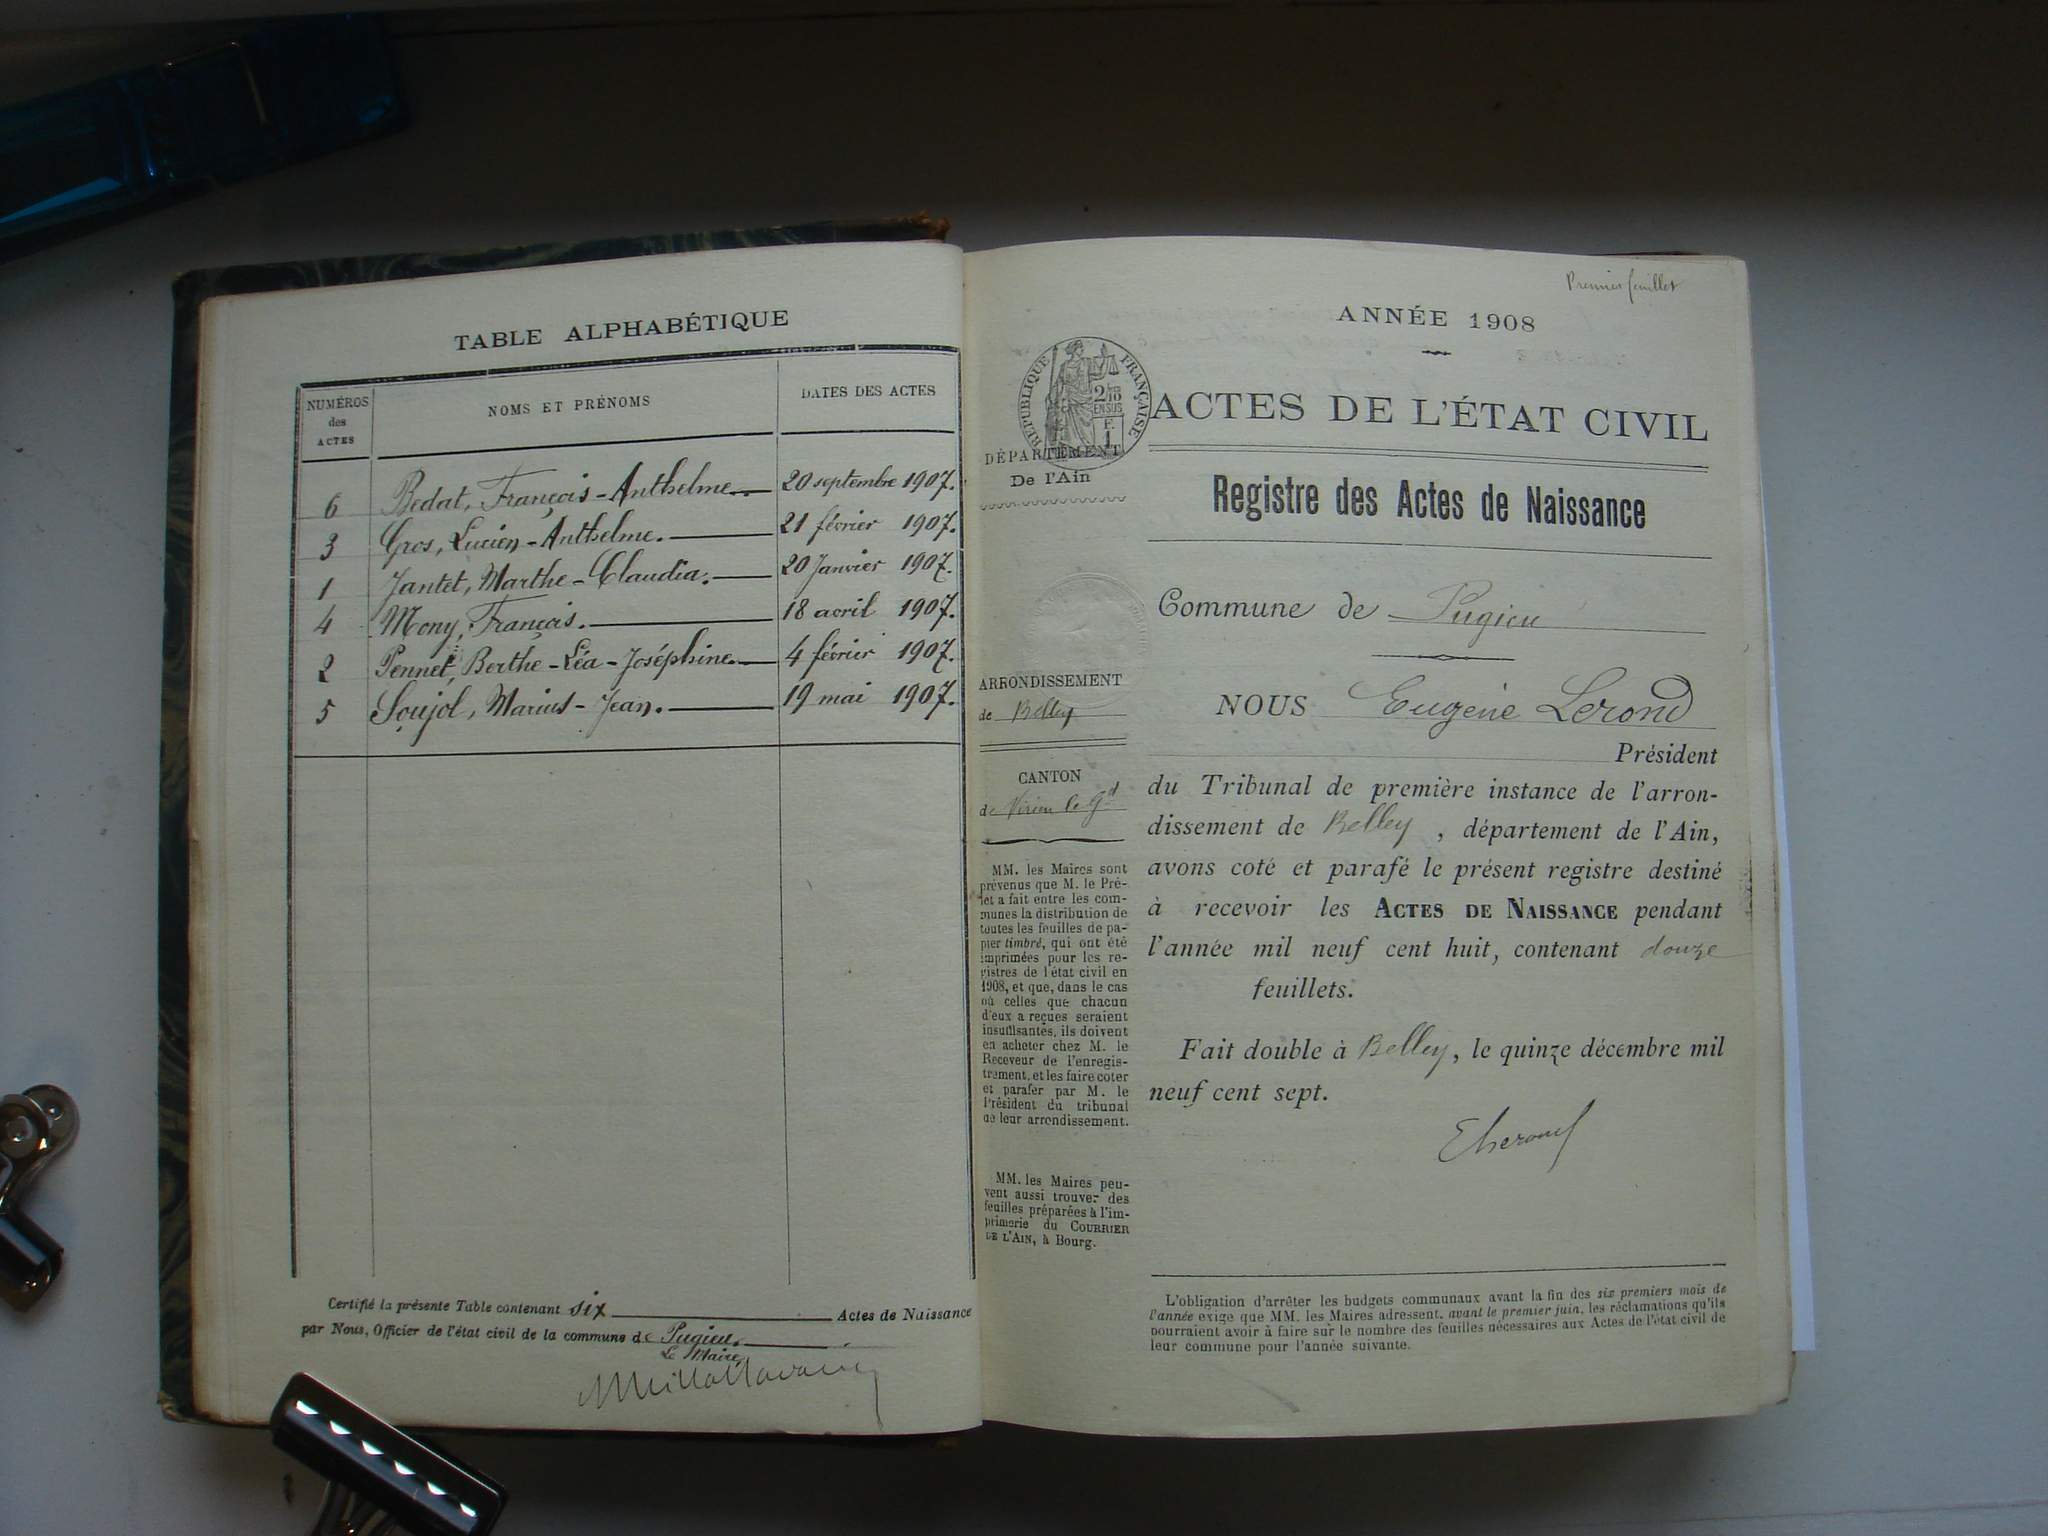 TABLE ALPHABÉTIQUE
NUMÉROS des ACTES NOMS ET PRÉNOMS DATES DES ACTES
6 Bedat, François-Anthelme. 20 septembre 1907.
3 Gros, Lucien-Anthelme. 21 février 1907.
1 Jantet, Marthe-Claudia. 20 Janvier 1907.
4 Mony, François. 18 avril 1907.
2 Pennet, Berthe-Léa-Joséphine. 4 février 1907.
5 Soujol, Marius-Jean. 19 mai 1907.
Certifié la présente Table contenant six Actes de Naissance
par Nous, Officier de l'état civil de la commune de Pugieu.
Le Maire,
Premier feuillet
ANNÉE 1908
RÉPUBLIQUE FRANÇAISE
2/10
EN SUS
F.
1
ACTES DE L'ÉTAT CIVIL
DÉPARTEMENT
De l'Ain
Registre des Actes de Naissance
Commune de Pugieu
ARRONDISSEMENT
de Belley
CANTON
de Virieu le Gd
MM. les Maires sont
prévenus que M. le Pré-
fet a fait entre les com-
munes la distribution de
toutes les feuilles de pa-
pier timbré, qui ont été
imprimées pour les re-
gistres de l'état civil en
1908, et que, dans le cas
où celles que chacun
d'eux a reçues seraient
insuffisantes, ils doivent
en acheter chez M. le
Receveur de l'enregis-
trement, et les faire coter
et parafer par M. le
Président du tribunal
de leur arrondissement.
MM. les Maires peu-
vent aussi trouver des
feuilles préparées à l'im-
primerie du COURRIER
DE L'AIN, à Bourg.
NOUS Eugène Lerond
Président
du Tribunal de première instance de l'arron-
dissement de Belley, département de l'Ain,
avons coté et parafé le présent registre destiné
à recevoir les ACTES DE NAISSANCE pendant
l'année mil neuf cent huit, contenant douze
feuillets.
Fait double à Belley, le quinze décembre mil
neuf cent sept.
ELerond
L'obligation d'arrêter les budgets communaux avant la fin des six premiers mois de
l'année exige que MM. les Maires adressent, avant le premier juin, les réclamations qu'ils
pourraient avoir à faire sur le nombre des feuilles nécessaires aux Actes de l'état civil de
leur commune pour l'année suivante.